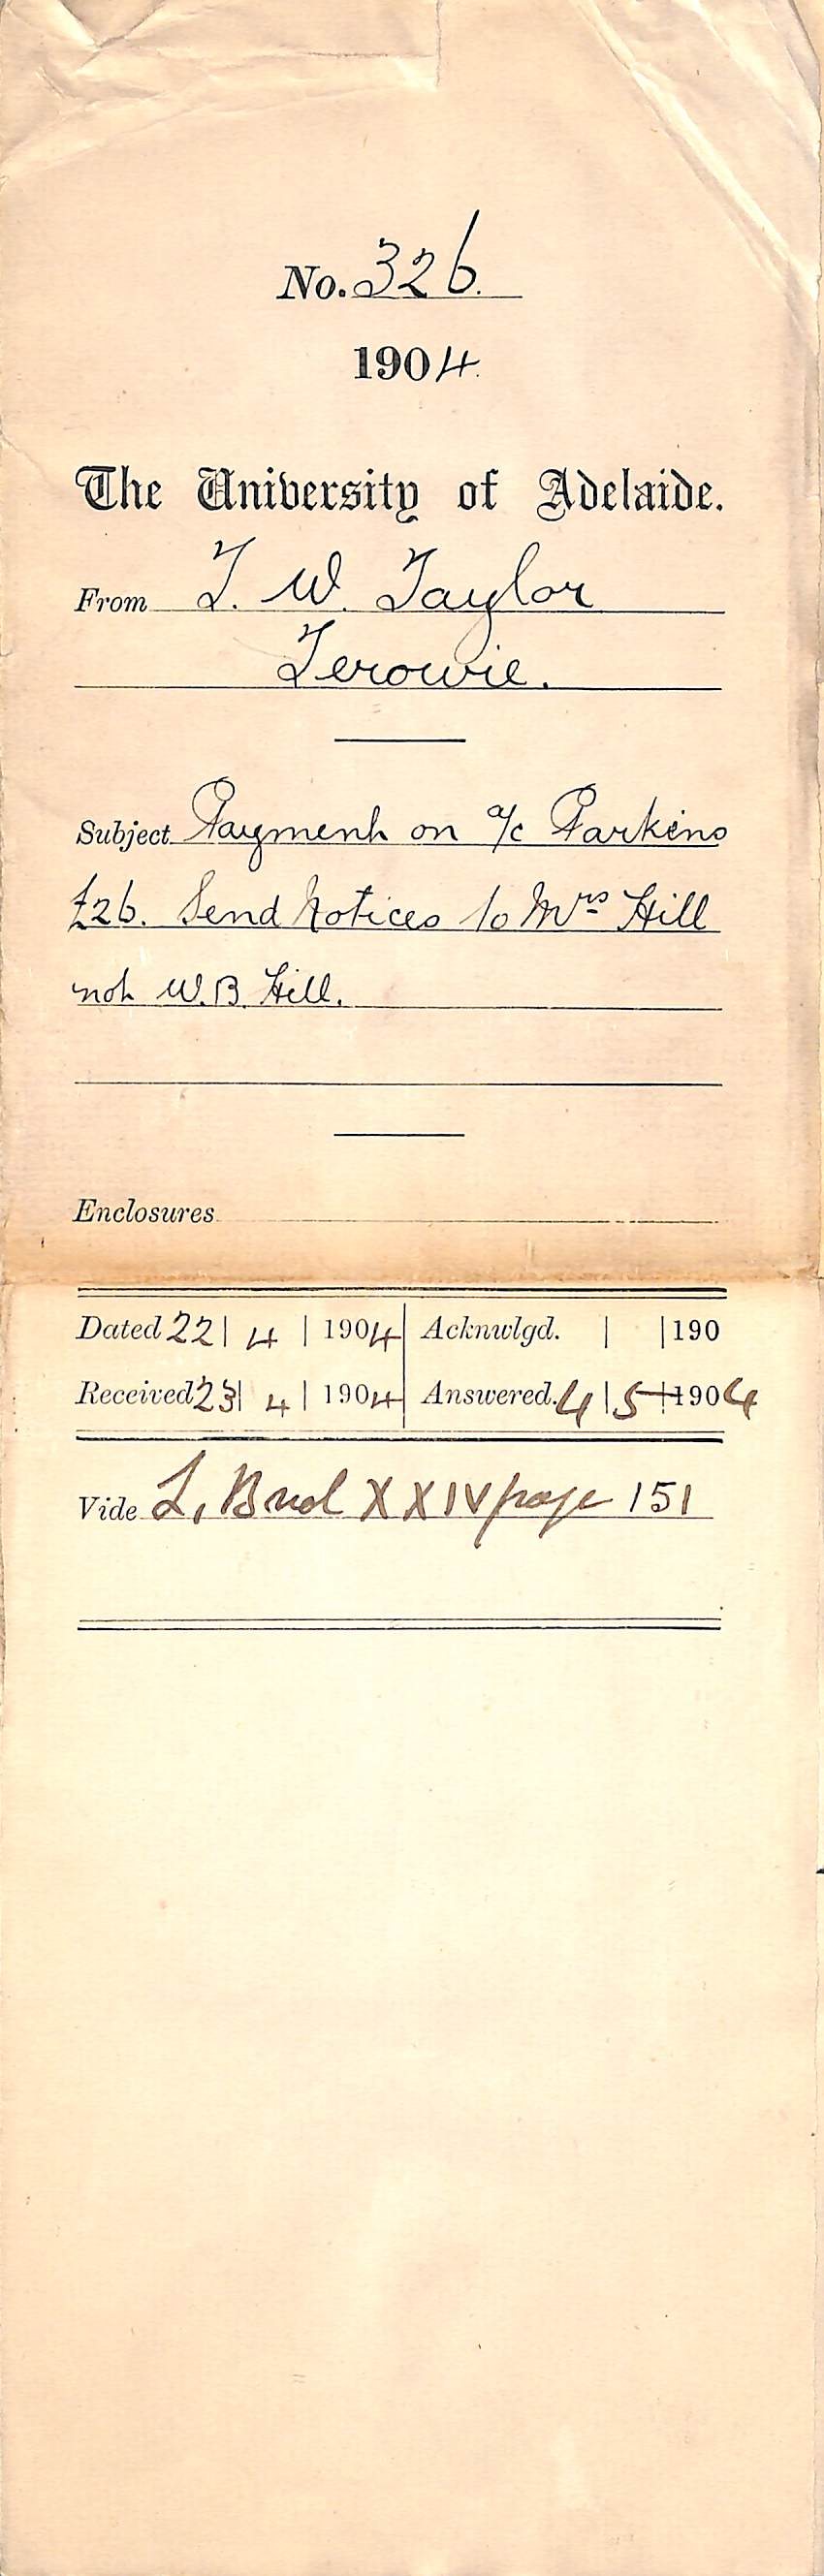 No. 326.
1904.
The University of Adelaide.
From T. W. Taylor
Terowie.
Subject Payment on a/c Parkins
£26. Send Notices to Mrs Hill
not W.B. Hill.
Enclosures
Dated 22 | 4 | 1904 Acknwlgd. | | 190
Received 23 | 4 | 1904 Answered. 4 | 5 | 1904
Vide L. XXIV page 151